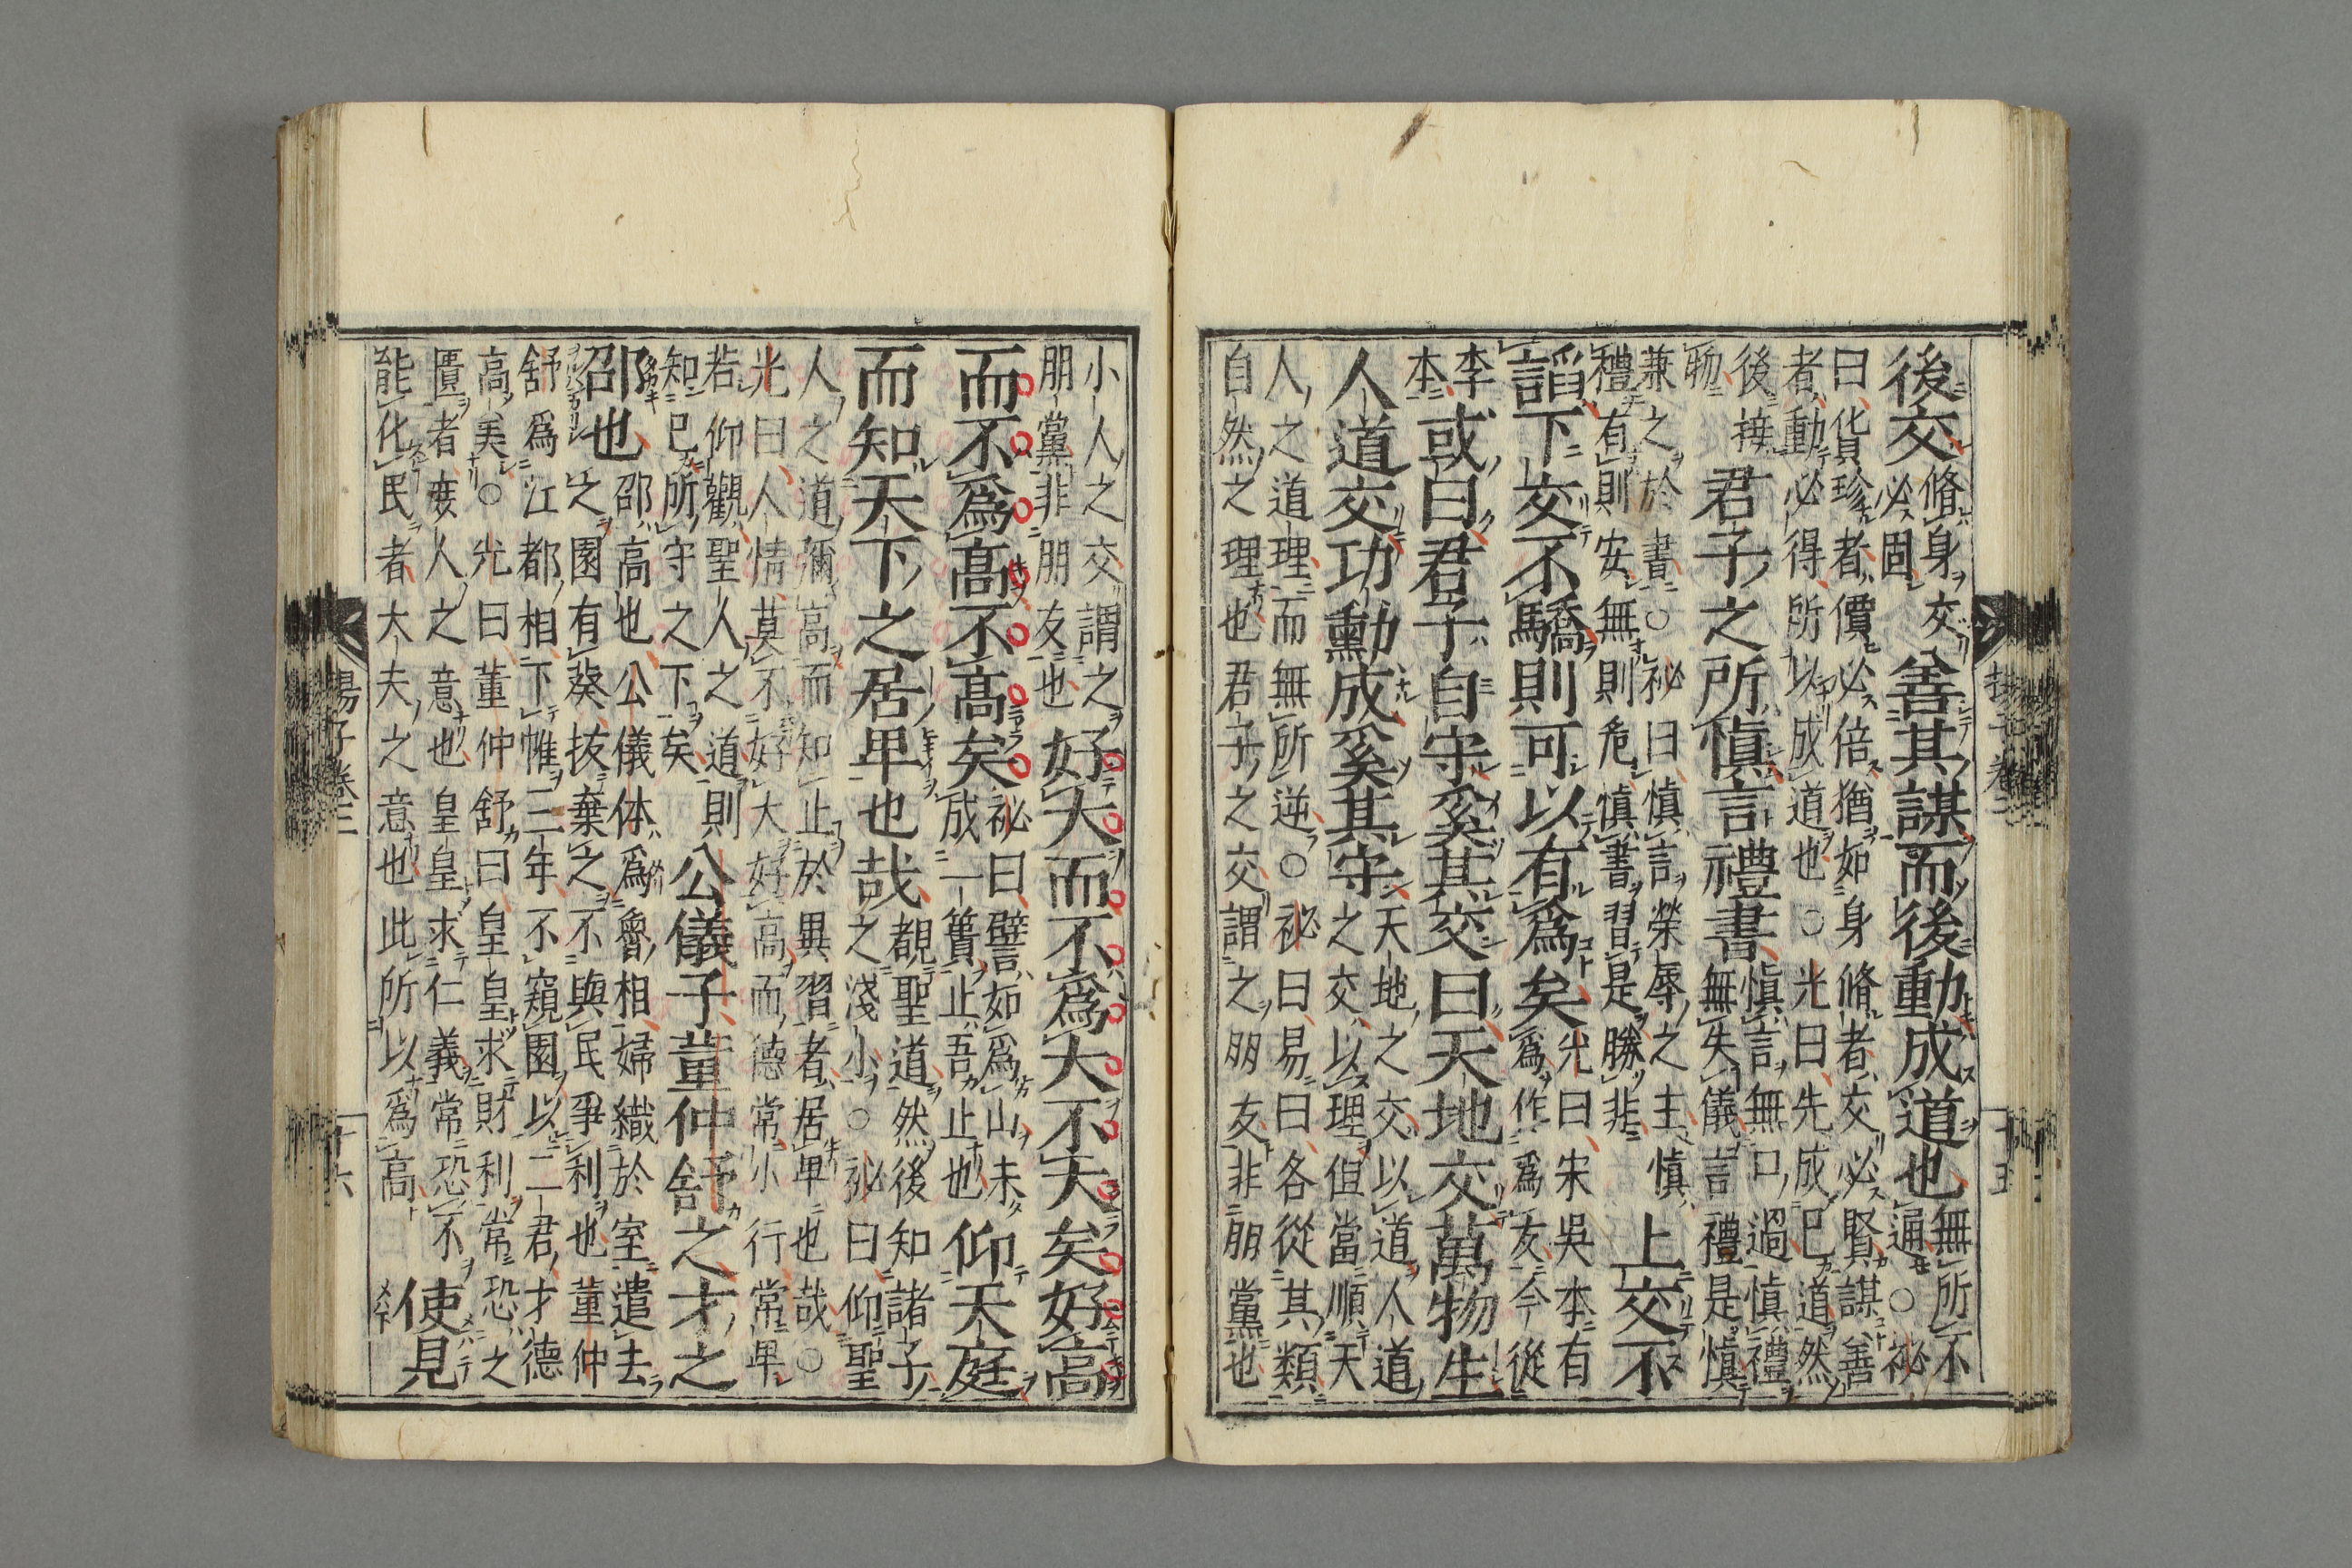 後交脩身交必固善其謀而後動成道也無所不通○祕
曰貨珍者價必倍猶如身脩者交必賢謀善
者動必得所以成道也○光曰先成已道然
後接物君子之所愼言禮書愼言無口過愼禮無失儀言禮是愼
兼之於書○祕曰愼言榮辱之主愼
禮有則安無則危愼書習是勝非上交不
諂下交不驕則可以有爲矣光曰宋吳本有爲作爲友今從
李本或曰君子自守奚其交曰天地交萬物生
人道交功勳成奚其守天地之交以道人道之交以理但當順天
人之道理而無所逆○祕曰易曰各從其類
自然之理也君子之交謂之朋友非朋黨也
十五
小人之交謂之朋黨非朋友也好大而不爲大不大矣好高
而不爲高不高矣祕曰譬如爲山未成一簣止吾止也仰天庭
而知天下之居卑也哉覩聖道然後知諸子之淺小○祕曰仰聖
人之道彌高而知止於異習者居卑也哉○
光曰人情莫不好大好高而德常小行常卑
若仰觀聖人之道則知已所守之下矣公儀子董仲舒之才之
邵也邵高也公儀体爲魯相婦織於室遣去之園有葵抜棄之不與民爭利也董仲
舒爲江都相下帷三年不窺園以二君才德
高美○光曰董仲舒曰皇皇求財利常恐之
匱者庻人之意也皇皇求仁義常恐不能化民者大夫之意也此所以爲高使見
揚子卷三
十六